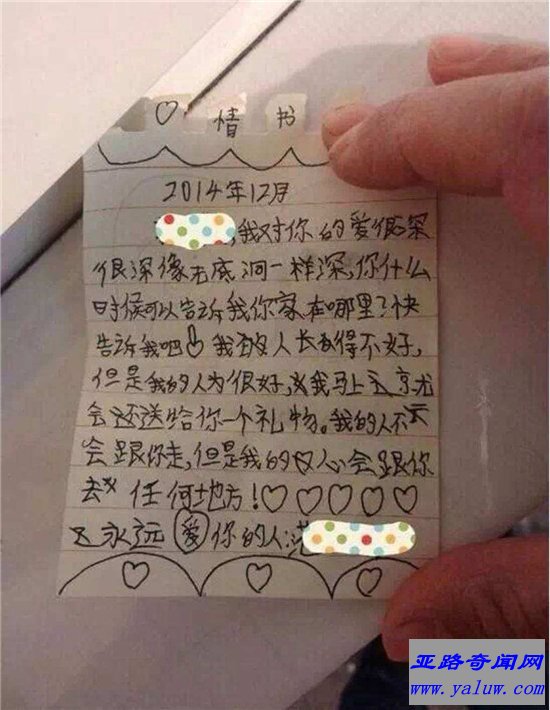 ♡ 情书
2014年12月
,我对你的爱很深
很深像无底洞一样深,你什么
时候可以告诉我你家在哪里?快
告诉我吧 我的人长得不好,
但是我的人为很好,我马上
会还送给你一个礼物。我的人不
会跟你走,但是我的心会跟你
去 任何地方!♡♡♡♡♡
永远爱你的人:范
♡ ♡ ♡
亚路奇闻网
www.yaluw.com